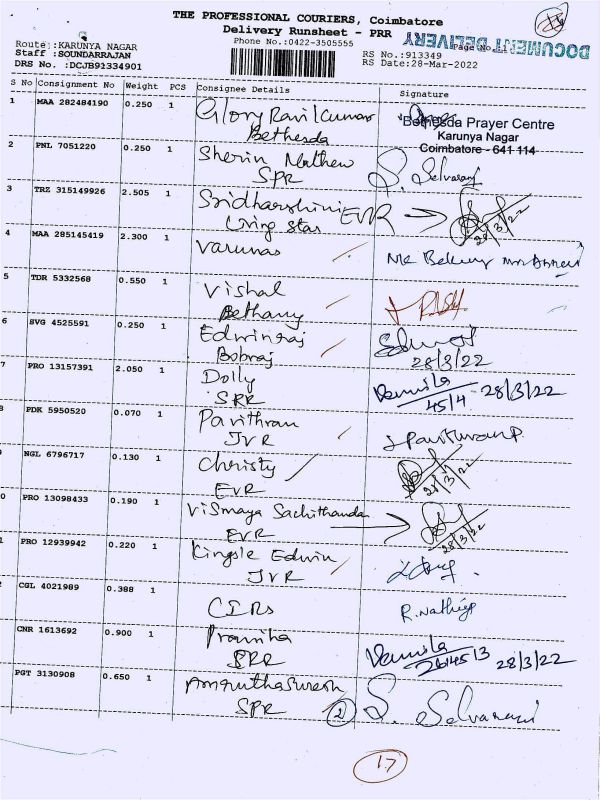 THE PROFESSIONAL COURIERS, Coimbatore
Delivery Runsheet - PRR
Phone No.:0422-3505555
DOCUMENT DELIVERY
Page No.
Route :KARUNYA NAGAR
Staff :SOUNDARRAJAN
DRS No. :DCJB91334901
RS No.:913349
RS Date:28-Mar-2022
S No Consignment No Weight PCS Consignee Details Signature
1 MAA 282484190 0.250 1 Glory Ravi Kumar
Bethesda
Bethesda Prayer Centre
Karunya Nagar
Coimbatore - 641 114
2 PNL 7051220 0.250 1 Sherin Mathew
SPR
S. Selvarani
3 TRZ 315149926 2.505 1 Sridharshini EVR
Living Star
28/3/22
4 MAA 285145419 2.300 1 Varunas
5 TDR 5332568 0.550 1 Vishal
Bethany
6 SVG 4525591 0.250 1 Edwinraj
Bobraj
28/3/22
7 PRO 13157391 2.050 1 Dolly
SRR
Vennila 28/3/22
45/4
8 PDK 5950520 0.070 1 Pavithran
JVR
9 NGL 6796717 0.130 1 Christy
EVR
28/3/22
0 PRO 13098433 0.190 1 Vismaya Sachithanda
EVR
28/3/22
1 PRO 12939942 0.220 1 Kingsle Edwin
JVR
CGL 4021989 0.388 1 CIRs
R. Nathiya
CNR 1613692 0.900 1 Pramiha
SRR
Vennila
28/3/22
PGT 3130908 0.650 1 Amrutha Suresh
SPR
2 S. Selvarani
17